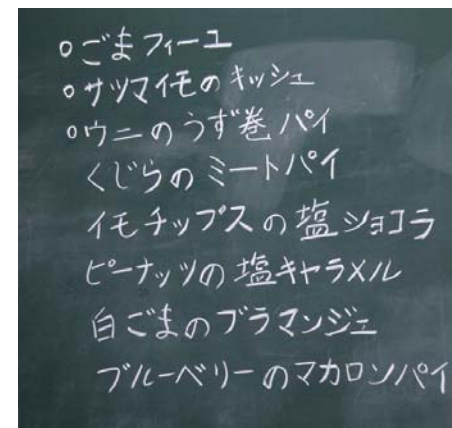 ○ごまフィーユ
○サツマイモのキッシュ
○ウニのうず巻パイ
くじらのミートパイ
イモチップスの塩ショコラ
ピーナッツの塩キャラメル
白ごまのブラマンジェ
ブルーベリーのマカロンパイ